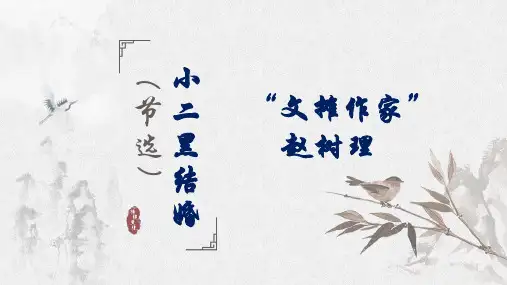 小二黑结婚
（节选）
“文摊作家”
赵树理